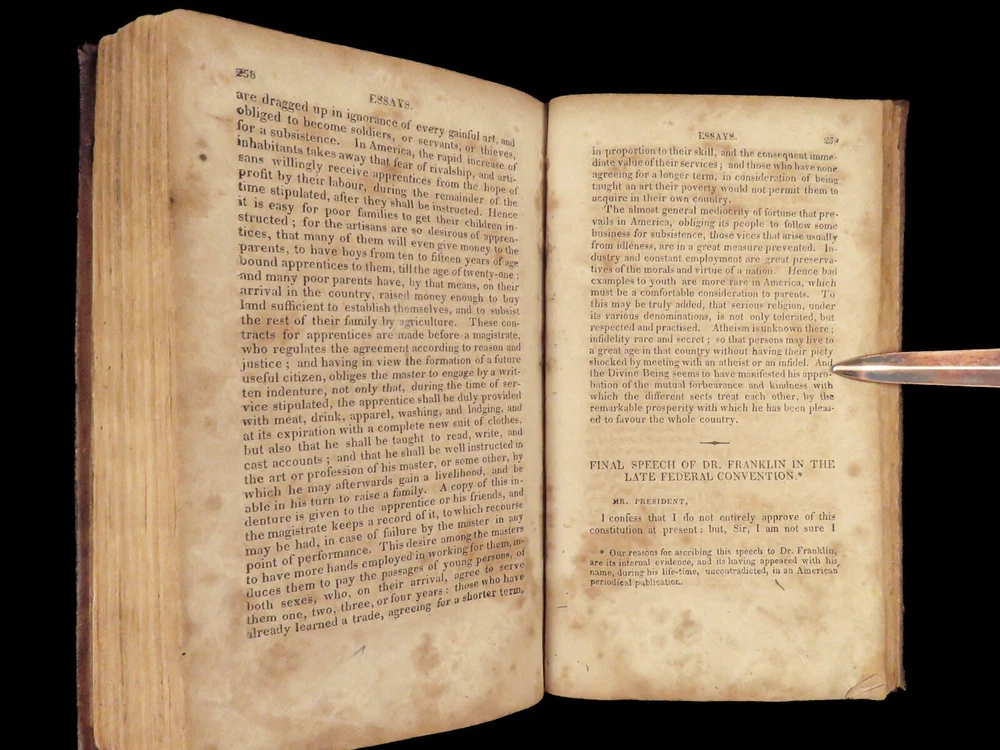 258
ESSAYS.
are dragged up in ignorance of every gainful art, and
obliged to become soldiers, or servants, or thieves,
for a subsistence. In America, the rapid increase of
inhabitants takes away that fear of rivalship, and arti-
sans willingly receive apprentices from the hope of
profit by their labour, during the remainder of the
time stipulated, after they shall be instructed. Hence
it is easy for poor families to get their children in-
structed; for the artisans are so desirous of appren-
tices, that many of them will even give money to the
parents, to have boys from ten to fifteen years of age
bound apprentices to them, till the age of twenty-one;
and many poor parents have, by that means, on their
arrival in the country, raised money enough to buy
land sufficient to establish themselves, and to subsist
the rest of their family by agriculture. These con-
tracts for apprentices are made before a magistrate,
who regulates the agreement according to reason and
justice; and having in view the formation of a future
useful citizen, obliges the master to engage by a writ-
ten indenture, not only that, during the time of ser-
vice stipulated, the apprentice shall be duly provided
with meat, drink, apparel, washing, and lodging, and
at its expiration with a complete new suit of clothes,
but also that he shall be taught to read, write, and
cast accounts; and that he shall be well instructed in
the art or profession of his master, or some other, by
which he may afterwards gain a livelihood, and be
able in his turn to raise a family. A copy of this in-
denture is given to the apprentice or his friends, and
the magistrate keeps a record of it, to which recourse
may be had, in case of failure by the master in any
point of performance. This desire among the masters
to have more hands employed in working for them, in-
duces them to pay the passages of young persons, of
both sexes, who, on their arrival, agree to serve
them one, two, three, or four years: those who have
already learned a trade, agreeing for a shorter term,
ESSAYS.
259
in proportion to their skill, and the consequent imme-
diate value of their services; and those who have none
agreeing for a longer term, in consideration of being
taught an art their poverty would not permit them to
acquire in their own country.
The almost general mediocrity of fortune that pre-
vails in America, obliging its people to follow some
business for subsistence, those vices that arise usually
from idleness, are in a great measure prevented. In-
dustry and constant employment are great preserva-
tives of the morals and virtue of a nation. Hence bad
examples to youth are more rare in America, which
must be a comfortable consideration to parents. To
this may be truly added, that serious religion, under
its various denominations, is not only tolerated, but
respected and practised. Atheism is unknown there;
infidelity rare and secret; so that persons may live to
a great age in that country without having their piety
shocked by meeting with an atheist or an infidel. And
the Divine Being seems to have manifested his appro-
bation of the mutual forbearance and kindness with
which the different sects treat each other, by the
remarkable prosperity with which he has been pleas-
ed to favour the whole country.
FINAL SPEECH OF DR. FRANKLIN IN THE
LATE FEDERAL CONVENTION.*
MR. PRESIDENT,
I confess that I do not entirely approve of this
constitution at present: but, Sir, I am not sure I
* Our reasons for ascribing this speech to Dr. Franklin,
are its internal evidence, and its having appeared with his
name, during his life-time, uncontradicted, in an American
periodical publication.